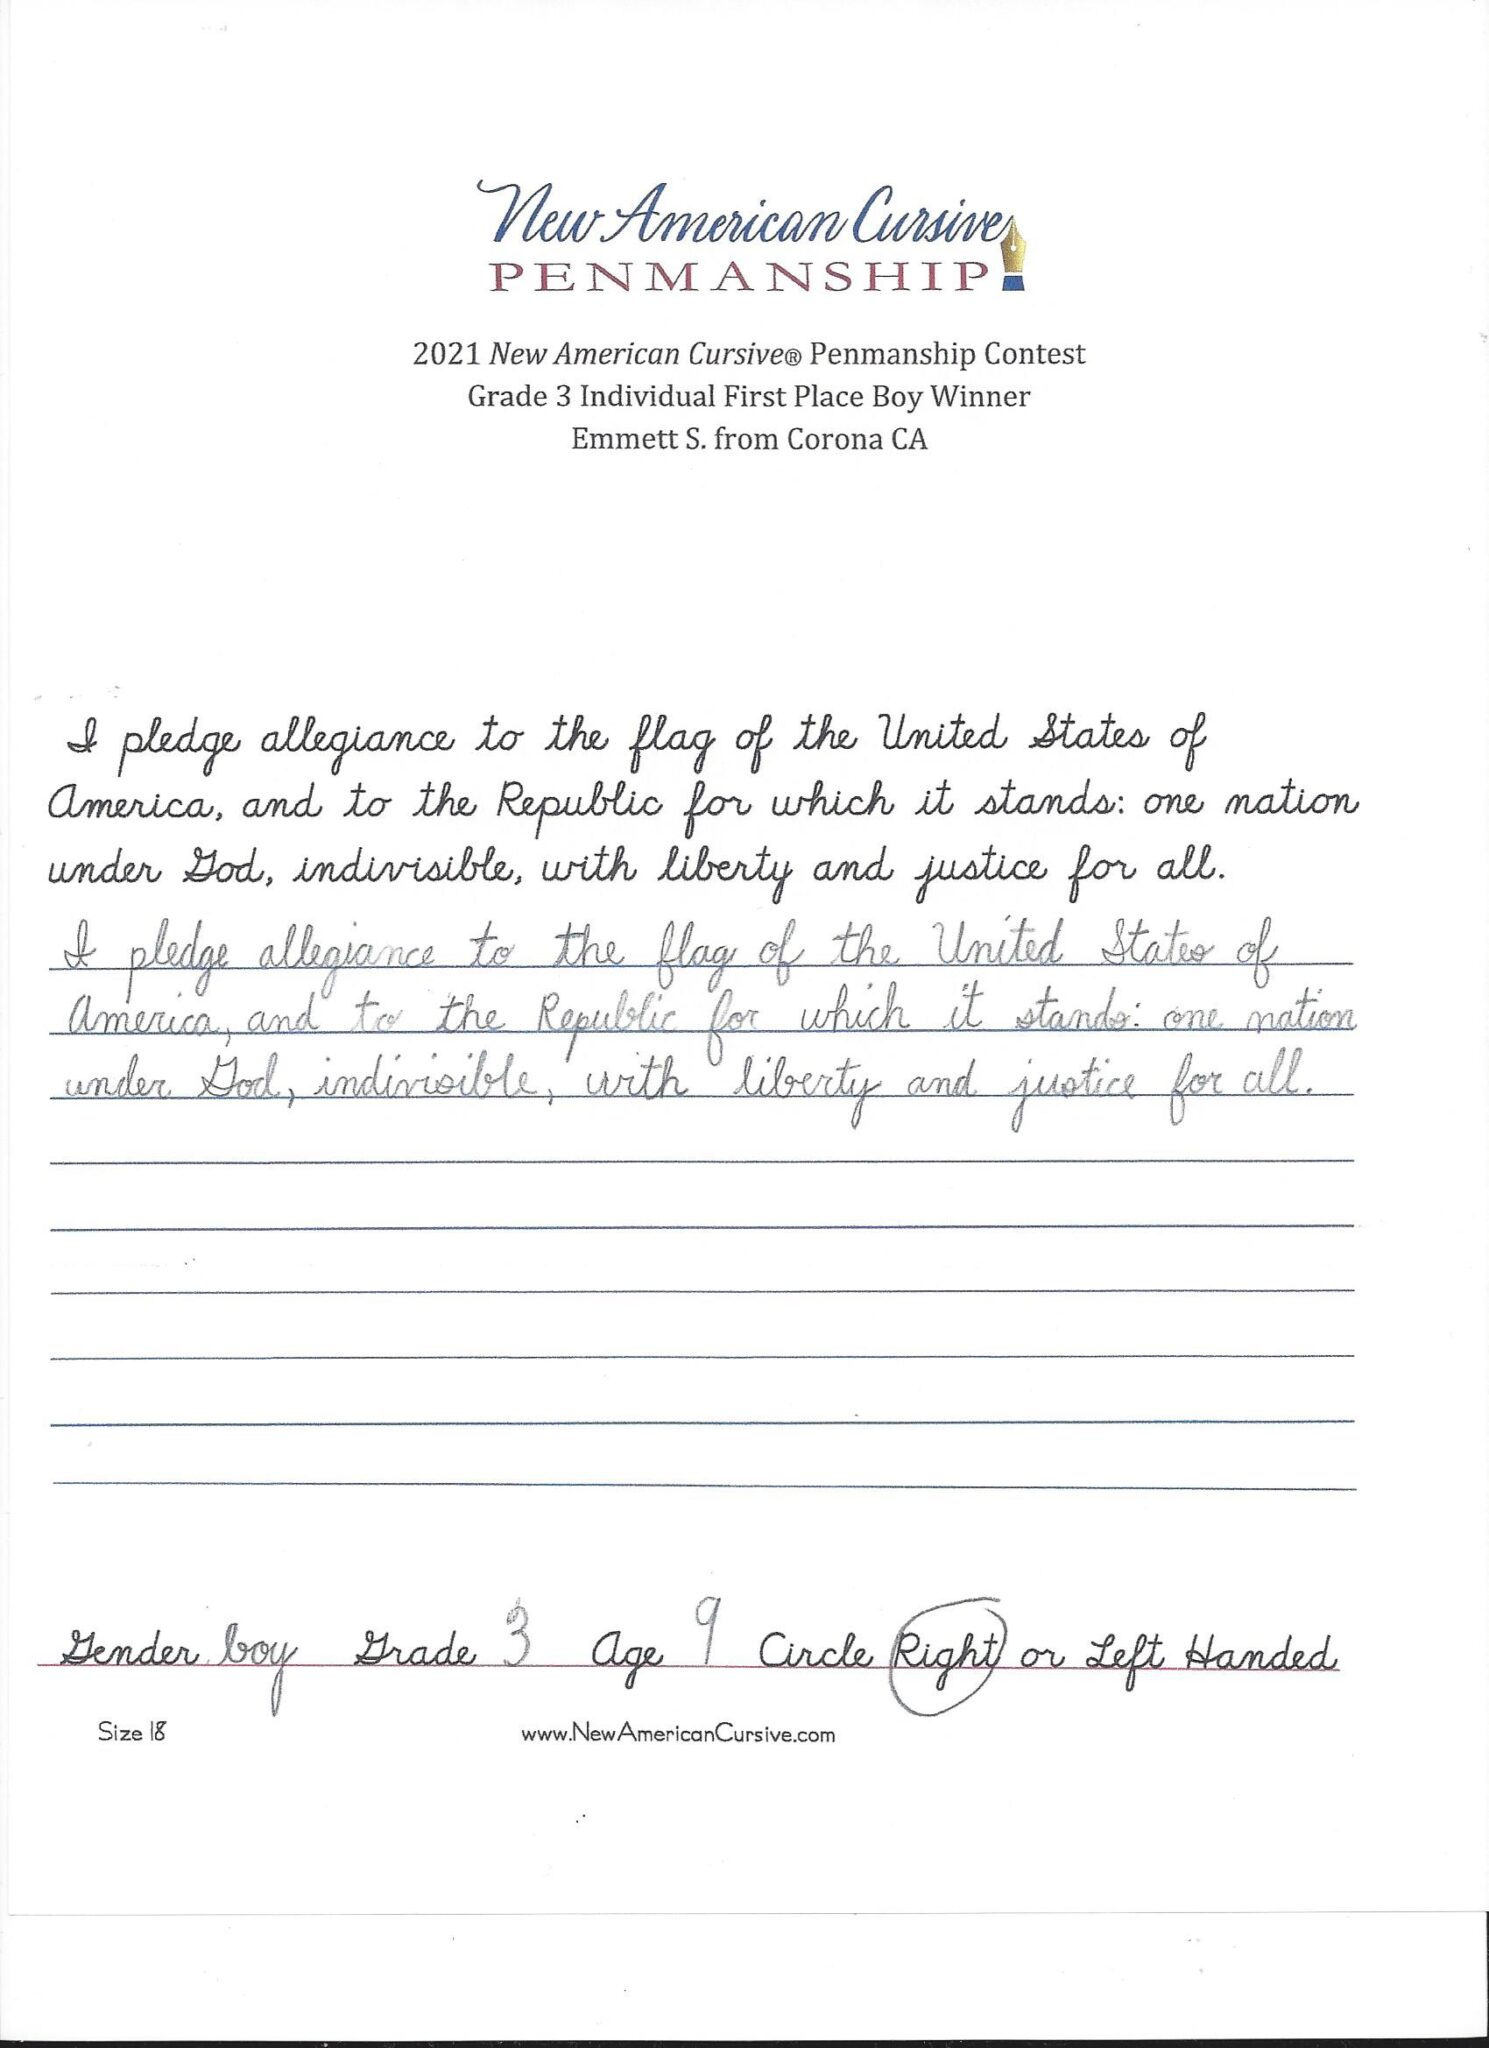 New American Cursive
PENMANSHIP
2021 New American Cursive® Penmanship Contest
Grade 3 Individual First Place Boy Winner
Emmett S. from Corona CA
I pledge allegiance to the flag of the United States of
America, and to the Republic for which it stands: one nation
under God, indivisible, with liberty and justice for all.
I pledge allegiance to the flag of the United States of
America, and to the Republic for which it stands: one nation
under God, indivisible, with liberty and justice for all.
Gender boy Grade 3 Age 9 Circle Right or Left Handed
Size 18 www.NewAmericanCursive.com